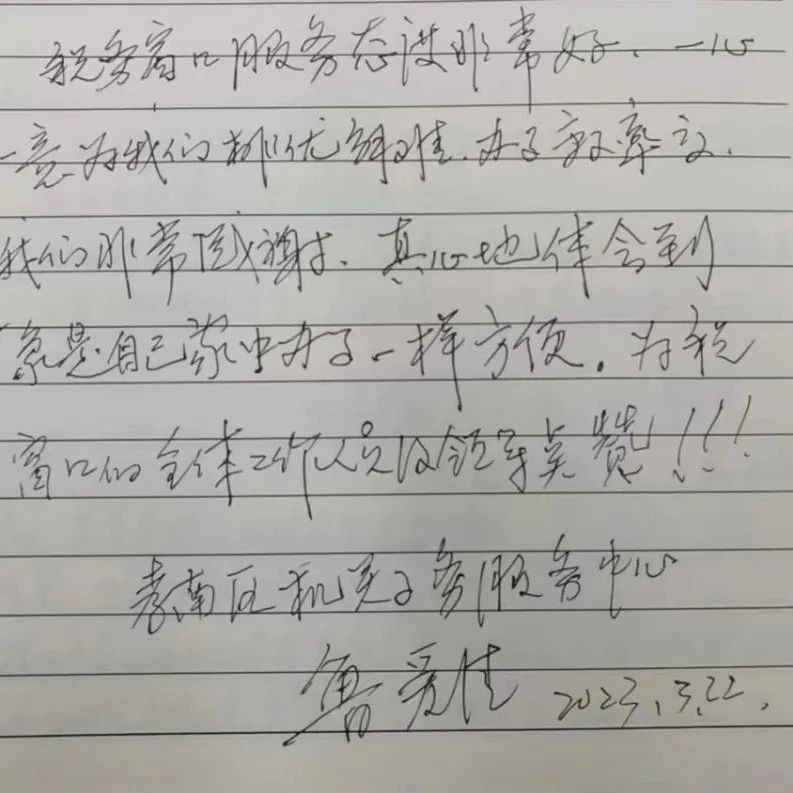 税务窗口服务态度非常好、一心
一意为我们排忧解难、办事效率高、
我们非常感谢、真心地体会到
像是自己家中办事一样方便。为税
窗口的全体工作人员及领导点赞!!!
孝南区机关事务服务中心
鲁爱 2023.3.22.